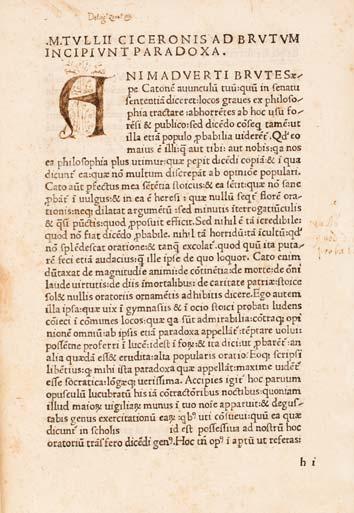 .M.TVLLII CICERONIS AD BRVTVM
INCIPIVNT PARADOXA.
ANIMADVERTI BRVTE Sæ
pe Catonē auunculū tuū: quū in senatu
sententiā diceret: locos graues ex philoso
phia tractare: abhorrētes ab hoc usu fo⸗
rēsi & publico: sed dicēdo cōseq tamē: ut
illa etiā populo ꝓbabilia uiderēt. Qđ eo
maius ē illi: quā aut tibi: aut nobis: qa nos
ea philosophia plus utimur: quæ peperit dicēdi copiā: & ī qua
dicunt ea: quæ nō multum discrepāt ab opinione populari.
Cato aūt ꝑfectus mea sētētia stoicus: & ea sētit: quæ nō sane
ꝓbāt ī uulgus: & in ea ē heresi quæ nullū sequit florē ora⸗
tionis: neq dilatat argumētū: sed minutis īterrogatiūculis
& quasi pūctis: quod ꝓposuit efficit. Sed nihil ē tā īcredibile:
quod nō fiat dicēdo ꝓbabile. nihil tā horridū: tā īcultū: qđ
nō splēdescat oratione: & tanq excolat. quod quū ita puta⸗
rē feci etiā audacius: q ille ipse de quo loquor. Cato enim
dūtaxat de magnitudīe animi: de cōtinētia: de morte: de ōni
laude uirtutis: de diis īmortalibus: de caritate patriæ: stoice
solet: nullis oratoriis ornamētis adhibitis dicere. Ego autem
illa ipsa: quæ uix ī gymnasiis & ī ocio stoici probāt: ludens
cōieci ī cōmunes locos: quæ qa sūt admirabilia: cōtraq opi
nione omniū: ab ipsis etiā paradoxa appellāt: tēptare uolui:
possētne proferri ī lucē: idest ī forū: & ita dici: ut ꝓbarēt: an
alia quædā essēt: & erudita: alia popularis oratio. Eoq scripsi
libētius: q mihi ista paradoxa quæ appellāt: maxime uidēt
esse socratica: lōgeq uerissima. Accipies igit hoc paruum
opusculū lucubratū his iā cōtractioribus noctibus: quoniam
illud maiorꝝ uigiliarꝝ munus ī tuo noīe apparuit: & degus⸗
tabis genus exercitationū earꝝ: qbꝰ uti cōsueui: quū ea quæ
dicunt in scholis id est possessiua ad nostrū hoc
oratoriū trāsfero dicēdi genꝰ. Hoc tn̄ opꝰ ī aptū ut referas:
h i